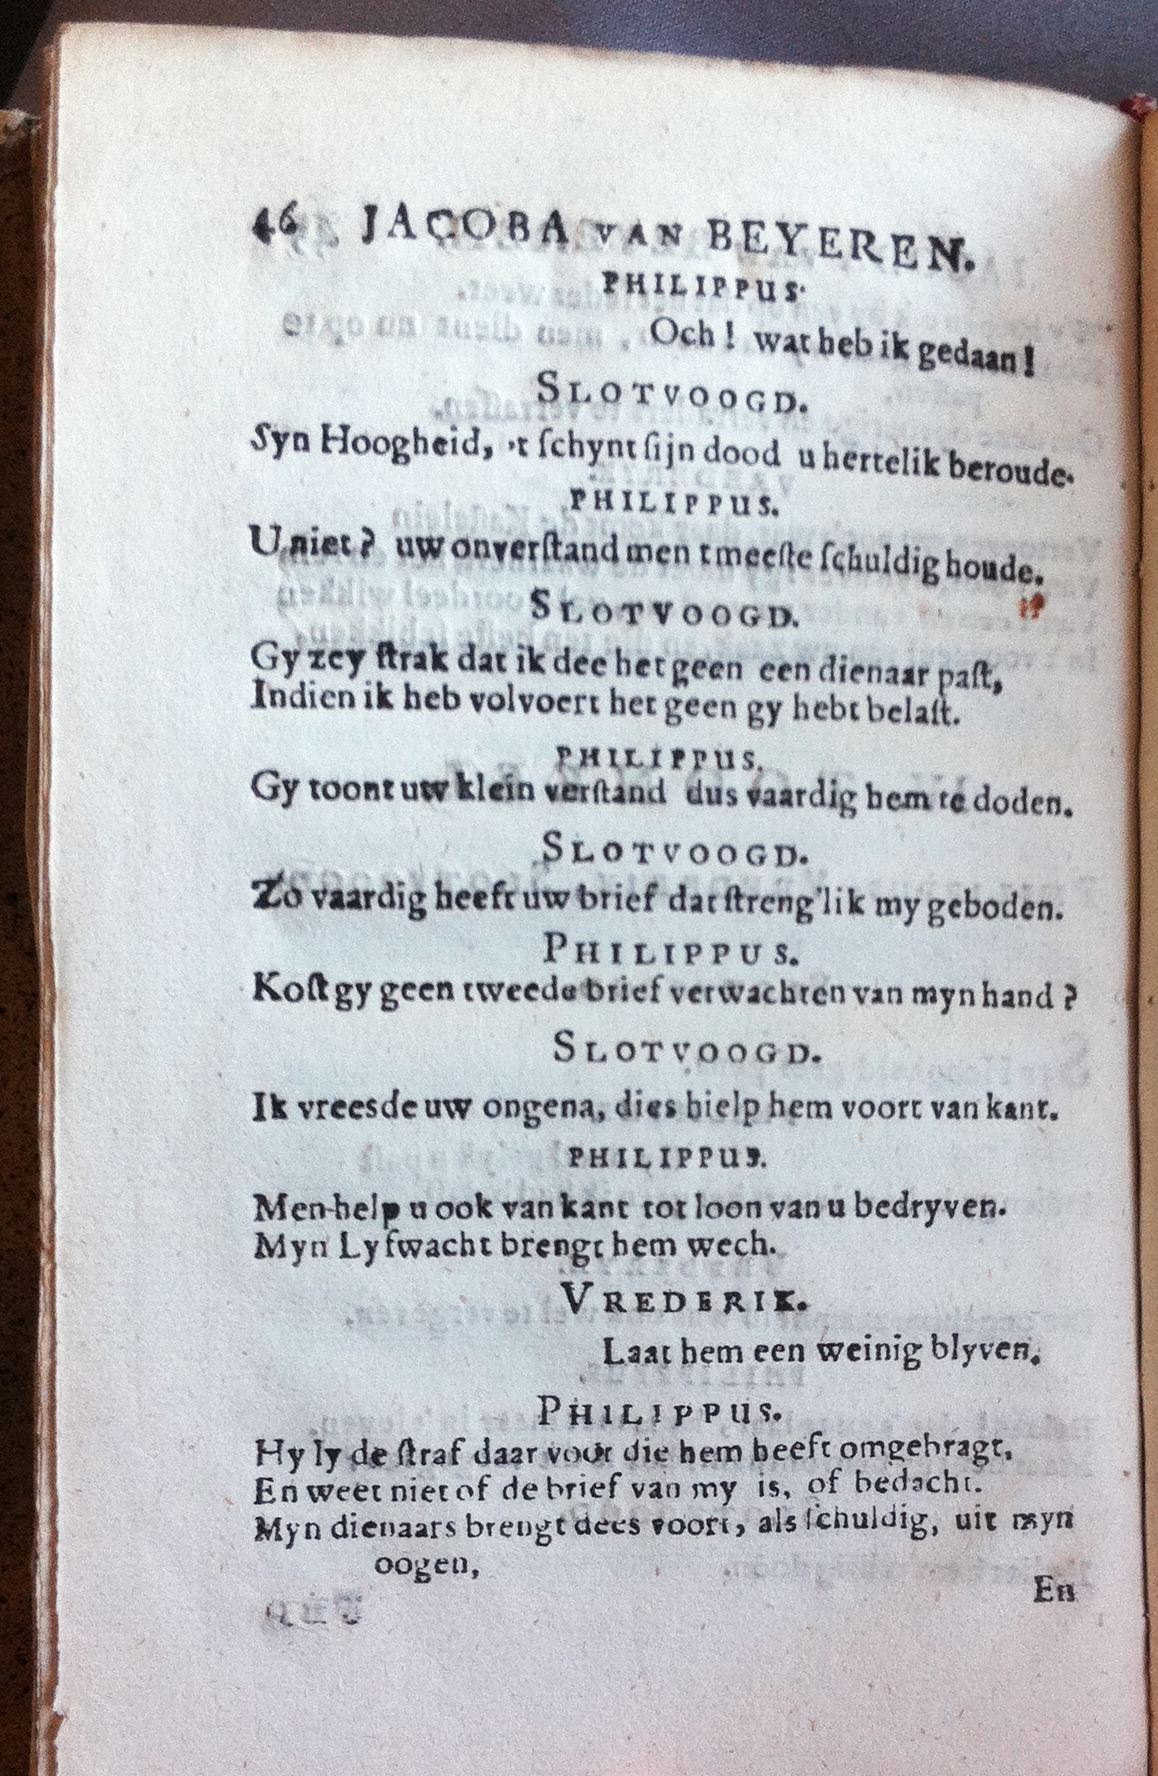 46 JACOBA VAN BEYEREN.
PHILIPPUS.
Och! wat heb ik gedaan!
SLOTVOOGD.
Syn Hoogheid, 't ſchynt ſijn dood u hertelik beroude.
PHILIPPUS.
U niet? uw onverſtand men tmeeſte ſchuldig houde.
SLOTVOOGD.
Gy zey ſtrak dat ik dee het geen een dienaar paſt,
Indien ik heb volvoert het geen gy hebt belaſt.
PHILIPPUS.
Gy toont uw klein verſtand dus vaardig hem te doden.
SLOTVOOGD.
Zo vaardig heeft uw brief dat ſtreng'lik my geboden.
PHILIPPUS.
Koſt gy geen tweede brief verwachten van myn hand?
SLOTVOOGD.
Ik vreesde uw ongena, dies hielp hem voort van kant.
PHILIPPUS.
Men help u ook van kant tot loon van u bedryven.
Myn Lyfwacht brengt hem wech.
VREDERIK.
Laat hem een weinig blyven.
PHILIPPUS.
Hy ly de ſtraf daar voor die hem heeft omgebragt,
En weet niet of de brief van my is, of bedacht.
Myn dienaars brengt dees voort, als ſchuldig, uit myn
oogen,
En